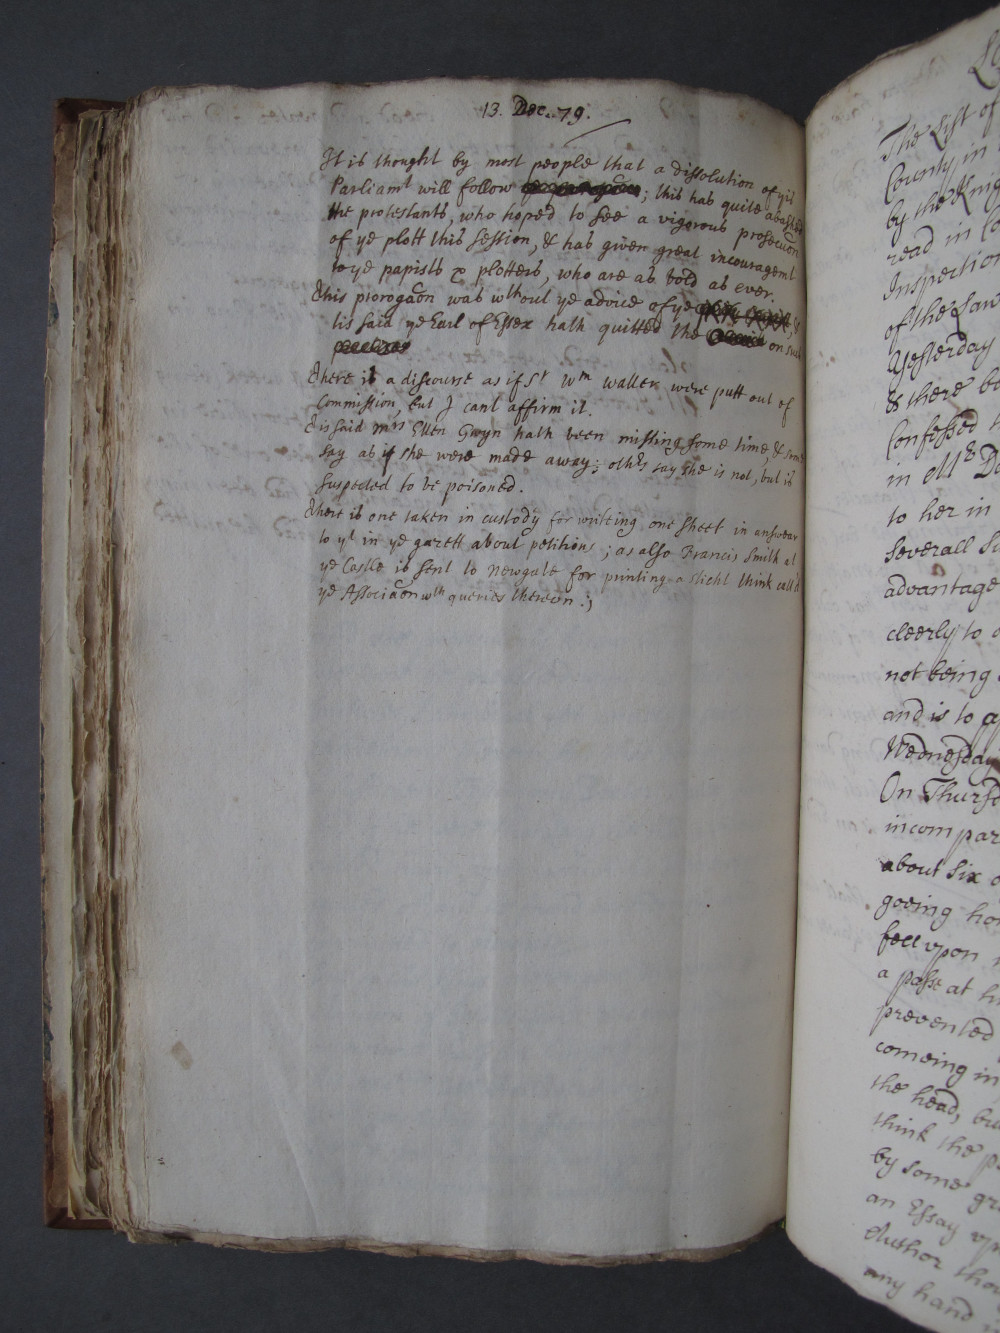 13. Dec. 79.
It is thought by most people that a dissolution of yis
Parliamt will follow ; this has quite abashed
the protestants, who hoped to see a vigorous prosecuon
of ye plott this session, & has given great incouragemt
to ye papists & plotters, who are as bold as ever.
This prorogaon was wthout ye advice of ye &
tis said ye Earl of Essex hath quitted the on such
There is a discourse as if Sr Wm Waller were putt out of
Commission, but I cant affirm it.
Tis said Mrs Ellen Gwyn hath been missing some time, & some
say as if she were made away; othrs say she is not, but is
suspected to be poisoned.
There is one taken in custody for writing one sheet in answear
to yt in ye gazett about petitions; as also Francis Smith at
ye Castle is sent to Newgate for printing a slicht think call'd
ye Associaon wth queries thereon.;
The List of
County in
by the Knig
read in Co
Inspection
of the Law
Yesterday
& there be
Confessed t
in Mr Da
to her in
severall Su
advantage
cleerly to
not being
and is to ap
Wednesday
On Thursd
incompar
about six o
goeing ho
fell upon
a passe at h
prevented
comeing in
the head, bu
think the p
by some gr
an Essay up
Author tho
any hand